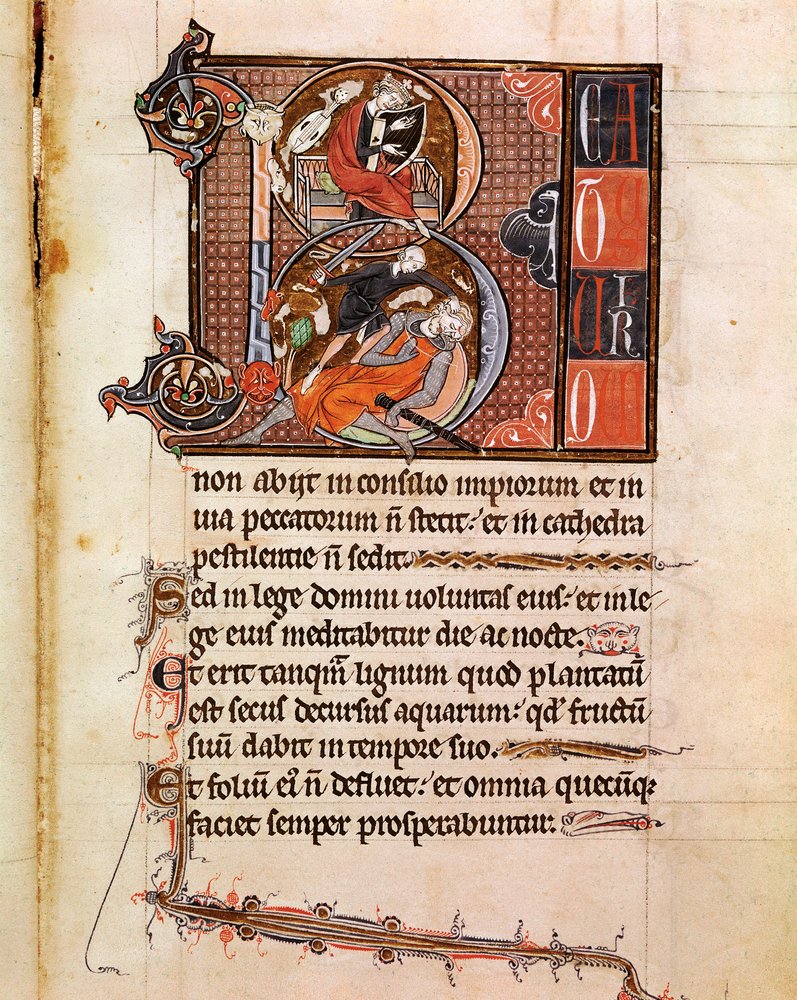 B EA
TUS
UIR
QUI
non abijt in consilio impiorum et in
uia peccatorum n̄ stetit: et in cathedra
pestilentie n̄ sedit.
Sed in lege domini uoluntas eius: et in le
ge eius meditabitur die ac nocte.
Et erit tanqm̄ lignum quod plantatū
est secus decursus aquarum: qd̄ fructū
suū dabit in tempore suo.
Et foliū eiꝰ n̄ defluet: et omnia quecūqꝫ
faciet semper prosperabuntur.